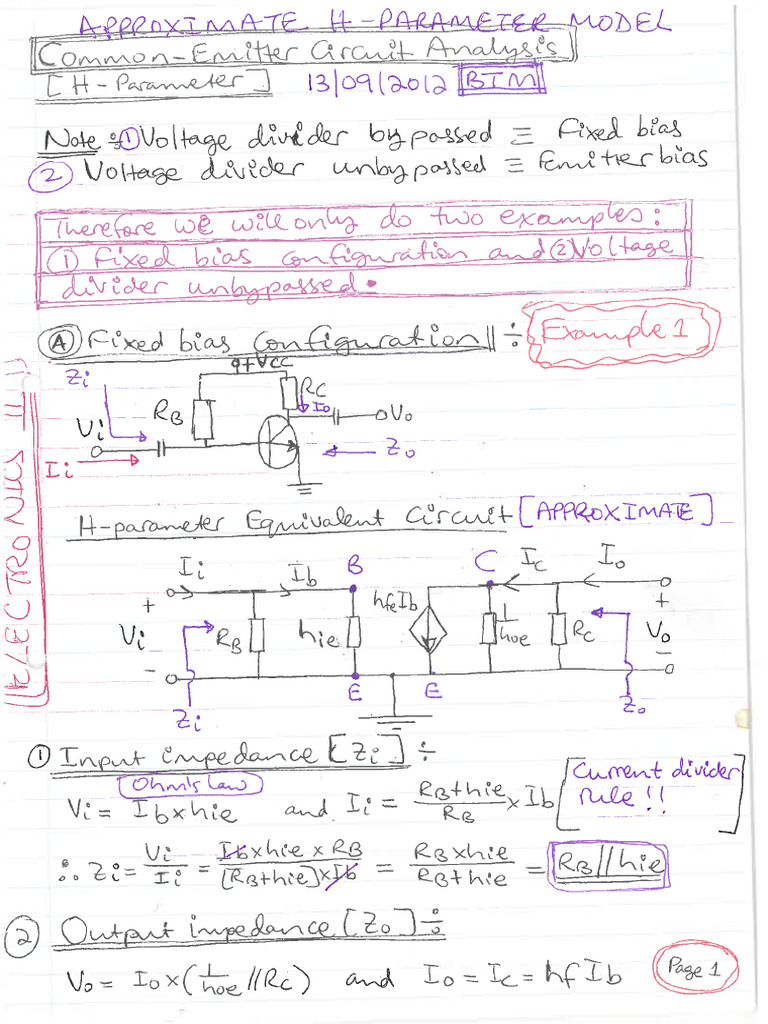 APPROXIMATE H-PARAMETER MODEL
Common-Emitter Circuit Analysis
[H-Parameter] 13/09/2012 BTM
Note: ① Voltage divider bypassed ≡ Fixed bias
② Voltage divider unbypassed ≡ Emitter bias
Therefore we will only do two examples:
① Fixed bias configuration and ② Voltage
divider unbypassed.
Ⓐ Fixed bias configuration ÷ Example 1
+VCC
Zi
RB
RC
Io
Vo
Vi
Zo
Ii
ELECTRONICS II
H-parameter Equivalent Circuit [APPROXIMATE]
Ii Ib B C Ic Io
+ hfeIb +
Vi RB hie 1/hoe RC Vo
- -
E E
Zi Zo
① Input impedance [Zi] ÷
Ohm's law
Vi = Ib×hie and Ii = (RB+hie)/RB × Ib [Current divider
rule!!]
∴ Zi = Vi/Ii = (Ib×hie×RB)/([RB+hie]×Ib) = (RB×hie)/(RB+hie) = RB//hie
② Output impedance [Zo] ÷
Vo = Io×(1/hoe//RC) and Io = Ic = hfIb
Page 1